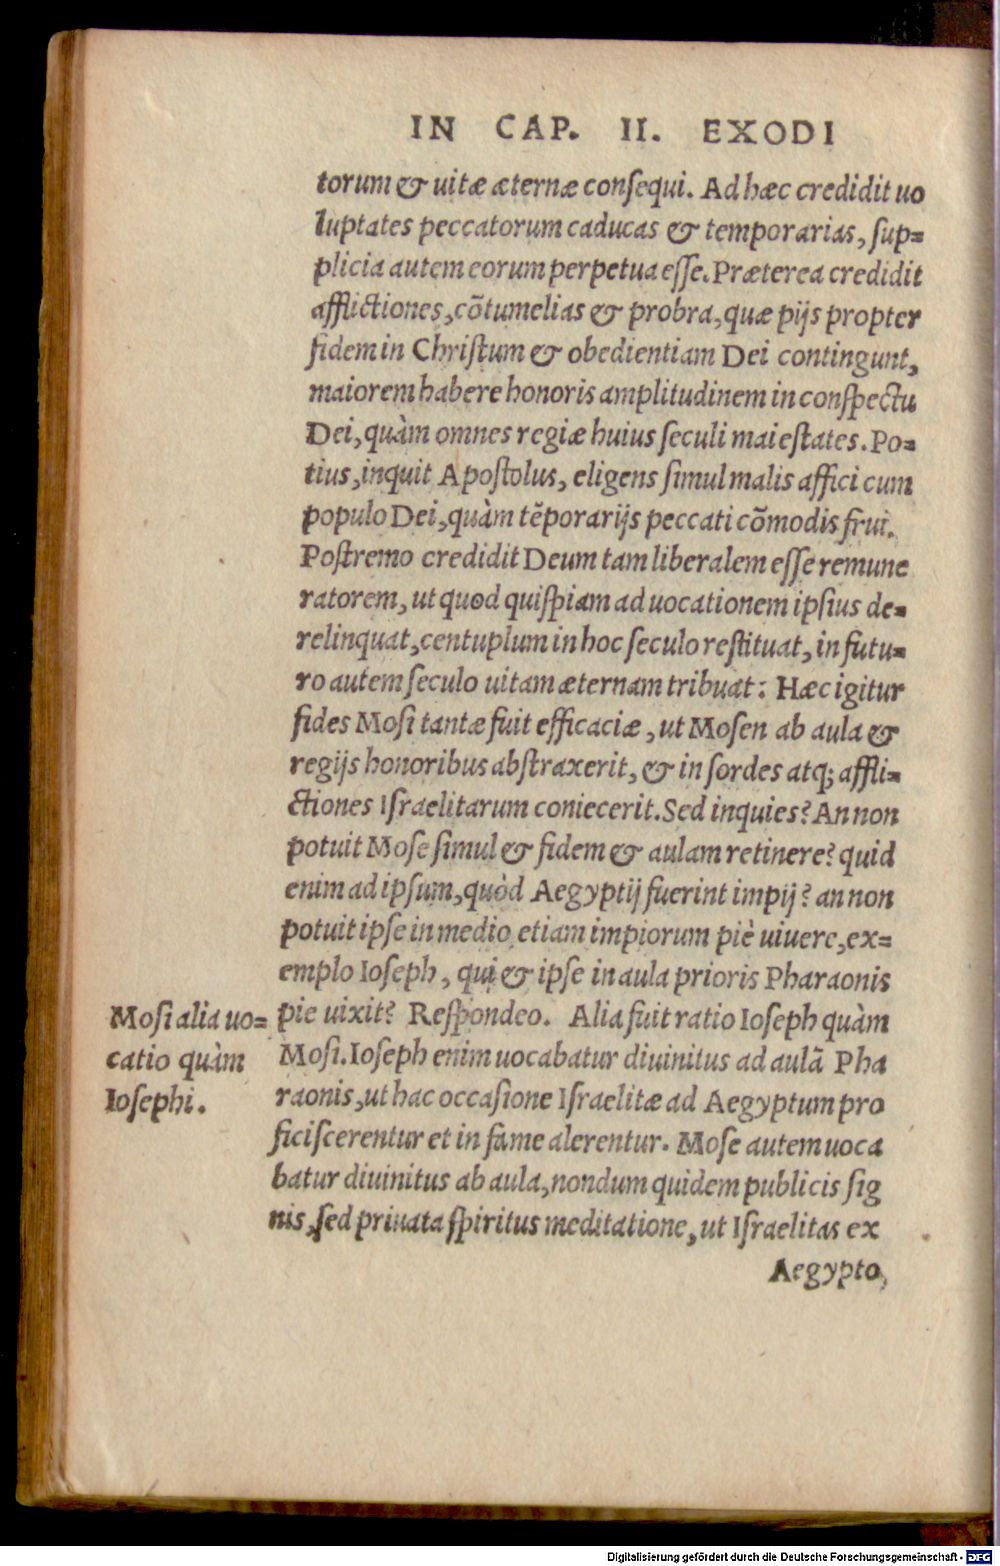 IN CAP. II. EXODI
torum & uitæ æternæ consequi. Ad hæc credidit uo
luptates peccatorum caducas & temporarias, sup=
plicia autem eorum perpetua esse. Præterea credidit
afflictiones, cõtumelias & probra, quæ pijs propter
fidem in Christum & obedientiam Dei contingunt,
maiorem habere honoris amplitudinem in conspectu
Dei, quàm omnes regiæ huius seculi maiestates. Po=
tius, inquit Apostolus, eligens simul malis affici cum
populo Dei, quàm tẽporarijs peccati cõmodis frui.
Postremo credidit Deum tam liberalem esse remune
ratorem, ut quod quispiam ad uocationem ipsius de=
relinquat, centuplum in hoc seculo restituat, in futu=
ro autem seculo uitam æternam tribuat: Hæc igitur
fides Mosi tantæ fuit efficaciæ, ut Mosen ab aula &
regijs honoribus abstraxerit, & in sordes atq; affli=
ctiones Israelitarum coniecerit. Sed inquies? An non
potuit Mose simul & fidem & aulam retinere? quid
enim ad ipsum, quòd Aegyptij fuerint impij? an non
potuit ipse in medio etiam impiorum piè uiuere, ex=
emplo Ioseph, qui & ipse in aula prioris Pharaonis
pie uixit? Respondeo. Alia fuit ratio Ioseph quàm
Mosi. Ioseph enim uocabatur diuinitus ad aulã Pha
raonis, ut hac occasione Israelitæ ad Aegyptum pro
ficiscerentur et in fame alerentur. Mose autem uoca
batur diuinitus ab aula, nondum quidem publicis sig
nis, sed priuata spiritus meditatione, ut Israelitas ex
Aegypto,
Mosi alia uo=
catio quàm
Iosephi.
Digitalisierung gefördert durch die Deutsche Forschungsgemeinschaft - DFG